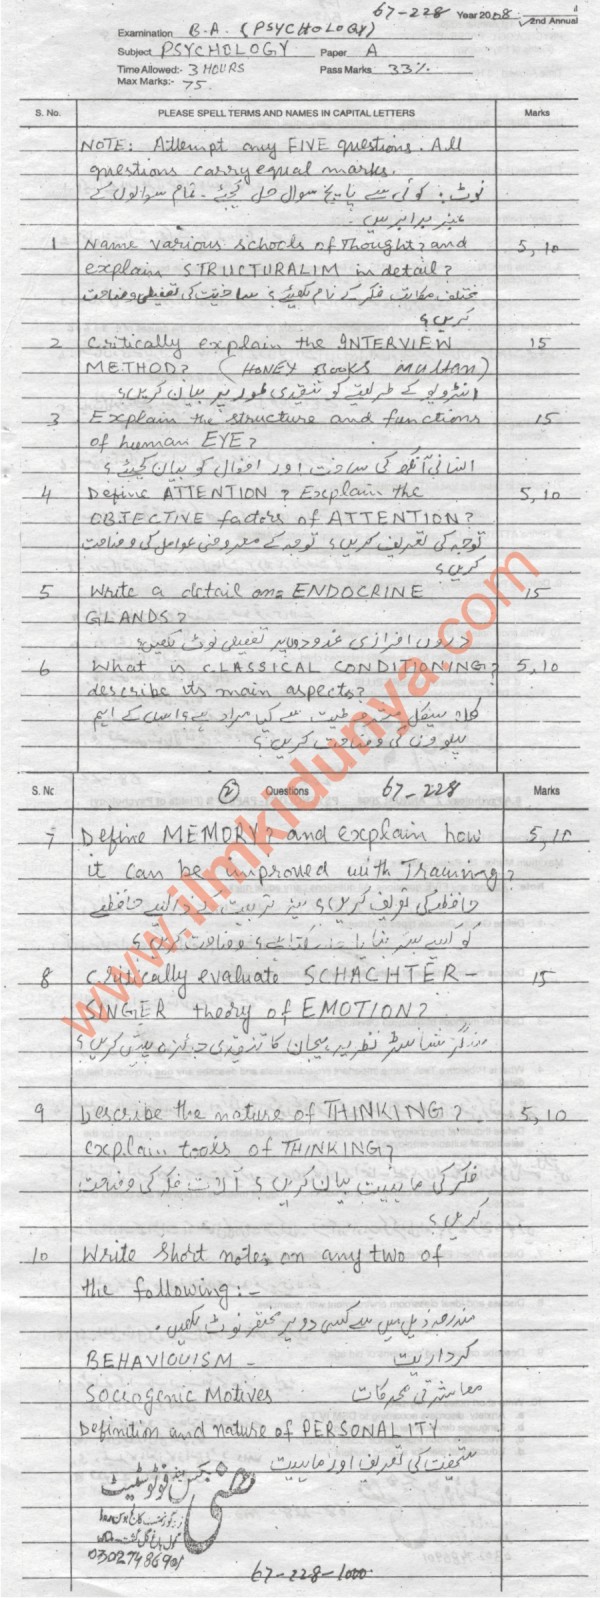 67-228 Year 2008. 2nd Annual
Examination B.A. (PSYCHOLOGY)
Subject PSYCHOLOGY Paper A
Time Allowed:- 3 HOURS Pass Marks 33%
Max Marks:- 75.
S. No. PLEASE SPELL TERMS AND NAMES IN CAPITAL LETTERS Marks
NOTE: Attempt any FIVE questions. All
questions carry equal marks.
نوٹ: کوئی سے پانچ سوال حل کیجئے۔ تمام سوالوں کے
نمبر برابر ہیں۔
1 Name various schools of Thought? and 5, 10
explain STRUCTURALIM in detail?
مختلف مکاتب فکر کے نام لکھیئے؟ ساختیت کی تفصیلی وضاحت
کریں؟
2 Critically explain the INTERVIEW 15
METHOD? (HONEY BOOKS MULTAN)
انٹرویو کے طریقے کو تنقیدی طور پر بیان کریں؟
3 Explain the structure and functions 15
of human EYE?
انسانی آنکھ کی ساخت اور افعال کو بیان کیجئے؟
4 Define ATTENTION? Explain the 5, 10
OBJECTIVE factors of ATTENTION?
توجہ کی تعریف کریں؟ توجہ کے معروضی عوامل کی وضاحت
کریں؟
5 Write a detail on= ENDOCRINE 15
GLANDS?
دروں افرازی غدودوں پر تفصیلی نوٹ لکھیں؟
6 What is CLASSICAL CONDITIONING? 5, 10
describe its main aspects?
کلاسیکل مشروطیت سے کیا مراد ہے؟ اس کے اہم
پہلوؤں کی وضاحت کریں؟
S. No (2) Questions 67-228 Marks
7 Define MEMORY? and explain how 5, 10
it can be improved with Training?
حافظے کی تعریف کریں؟ نیز تربیت کے ذریعے حافظے
کو کیسے بہتر بنایا جا سکتا ہے؟ وضاحت کریں؟
8 Critically evaluate SCHACHTER- 15
SINGER theory of EMOTION?
سنگر شاسٹر نظریہ ہیجان کا تنقیدی جائزہ پیش کریں؟
9 Describe the nature of THINKING? 5, 10
explain tools of THINKING?
فکر کی ماہیت بیان کریں؟ آلات فکر کی وضاحت
کریں؟
10 Write short notes on any two of
the following:-
مندرجہ ذیل میں سے کسی دو پر مختصر نوٹ لکھیں۔
BEHAVIOUISM - کرداریت
Sociogenic Motives معاشرتی محرکات
Definition and nature of PERSONALITY
شخصیت کی تعریف اور ماہیت
بکس اینڈ فوٹوسٹیٹ
03027486901
67-228-1000
www.ilmkidunya.com